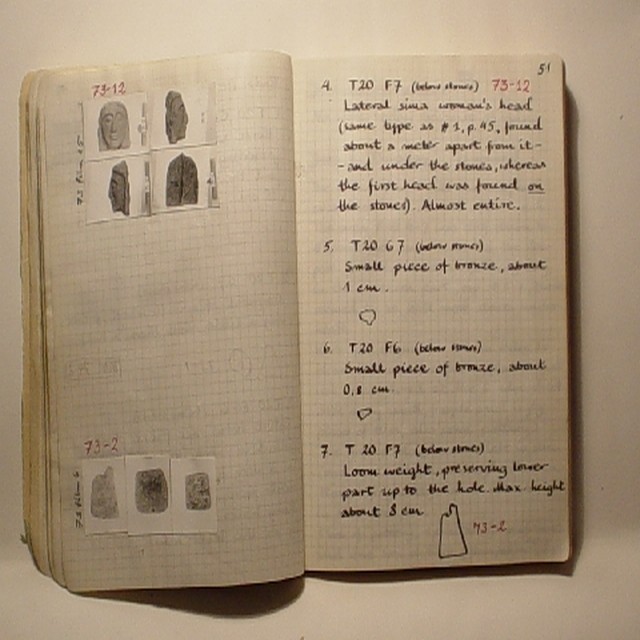 73-12
73 film 45
73-2
73 film 6
51
4. T20 F7 (below stones) 73-12
Lateral sima woman's head
(same type as #1, p. 45, found
about a meter apart from it-
-and under the stones, whereas
the first head was found on
the stones). Almost entire.
5. T20 G7 (below stones)
Small piece of bronze, about
1 cm.
6. T20 F6 (below stones)
Small piece of bronze, about
0,8 cm.
7. T20 F7 (below stones)
Loom weight, preserving lower
part up to the hole. Max. height
about 8 cm.
73-2